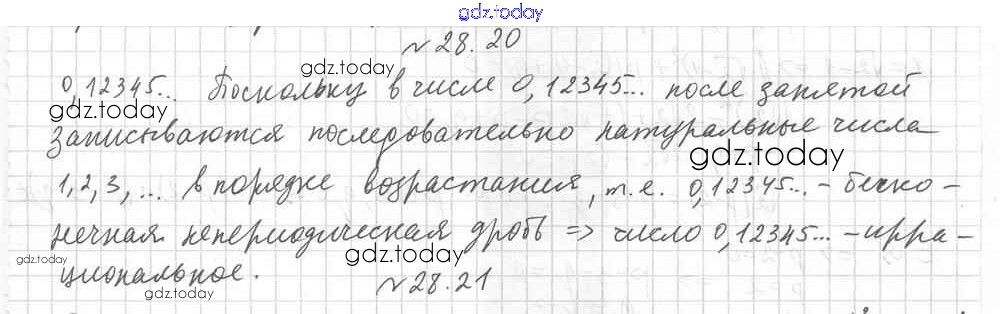 gdz.today
№ 28.20
gdz.today
0,12345... Поскольку в числе 0,12345... после запятой
gdz.today
записываются последовательно натуральные числа
gdz.today
1, 2, 3, ... в порядке возрастания, т.е. 0,12345... - беско-
нечная непериодическая дробь => число 0,12345... - ирра-
gdz.today
gdz.today
циональное.
№ 28.21
gdz.today